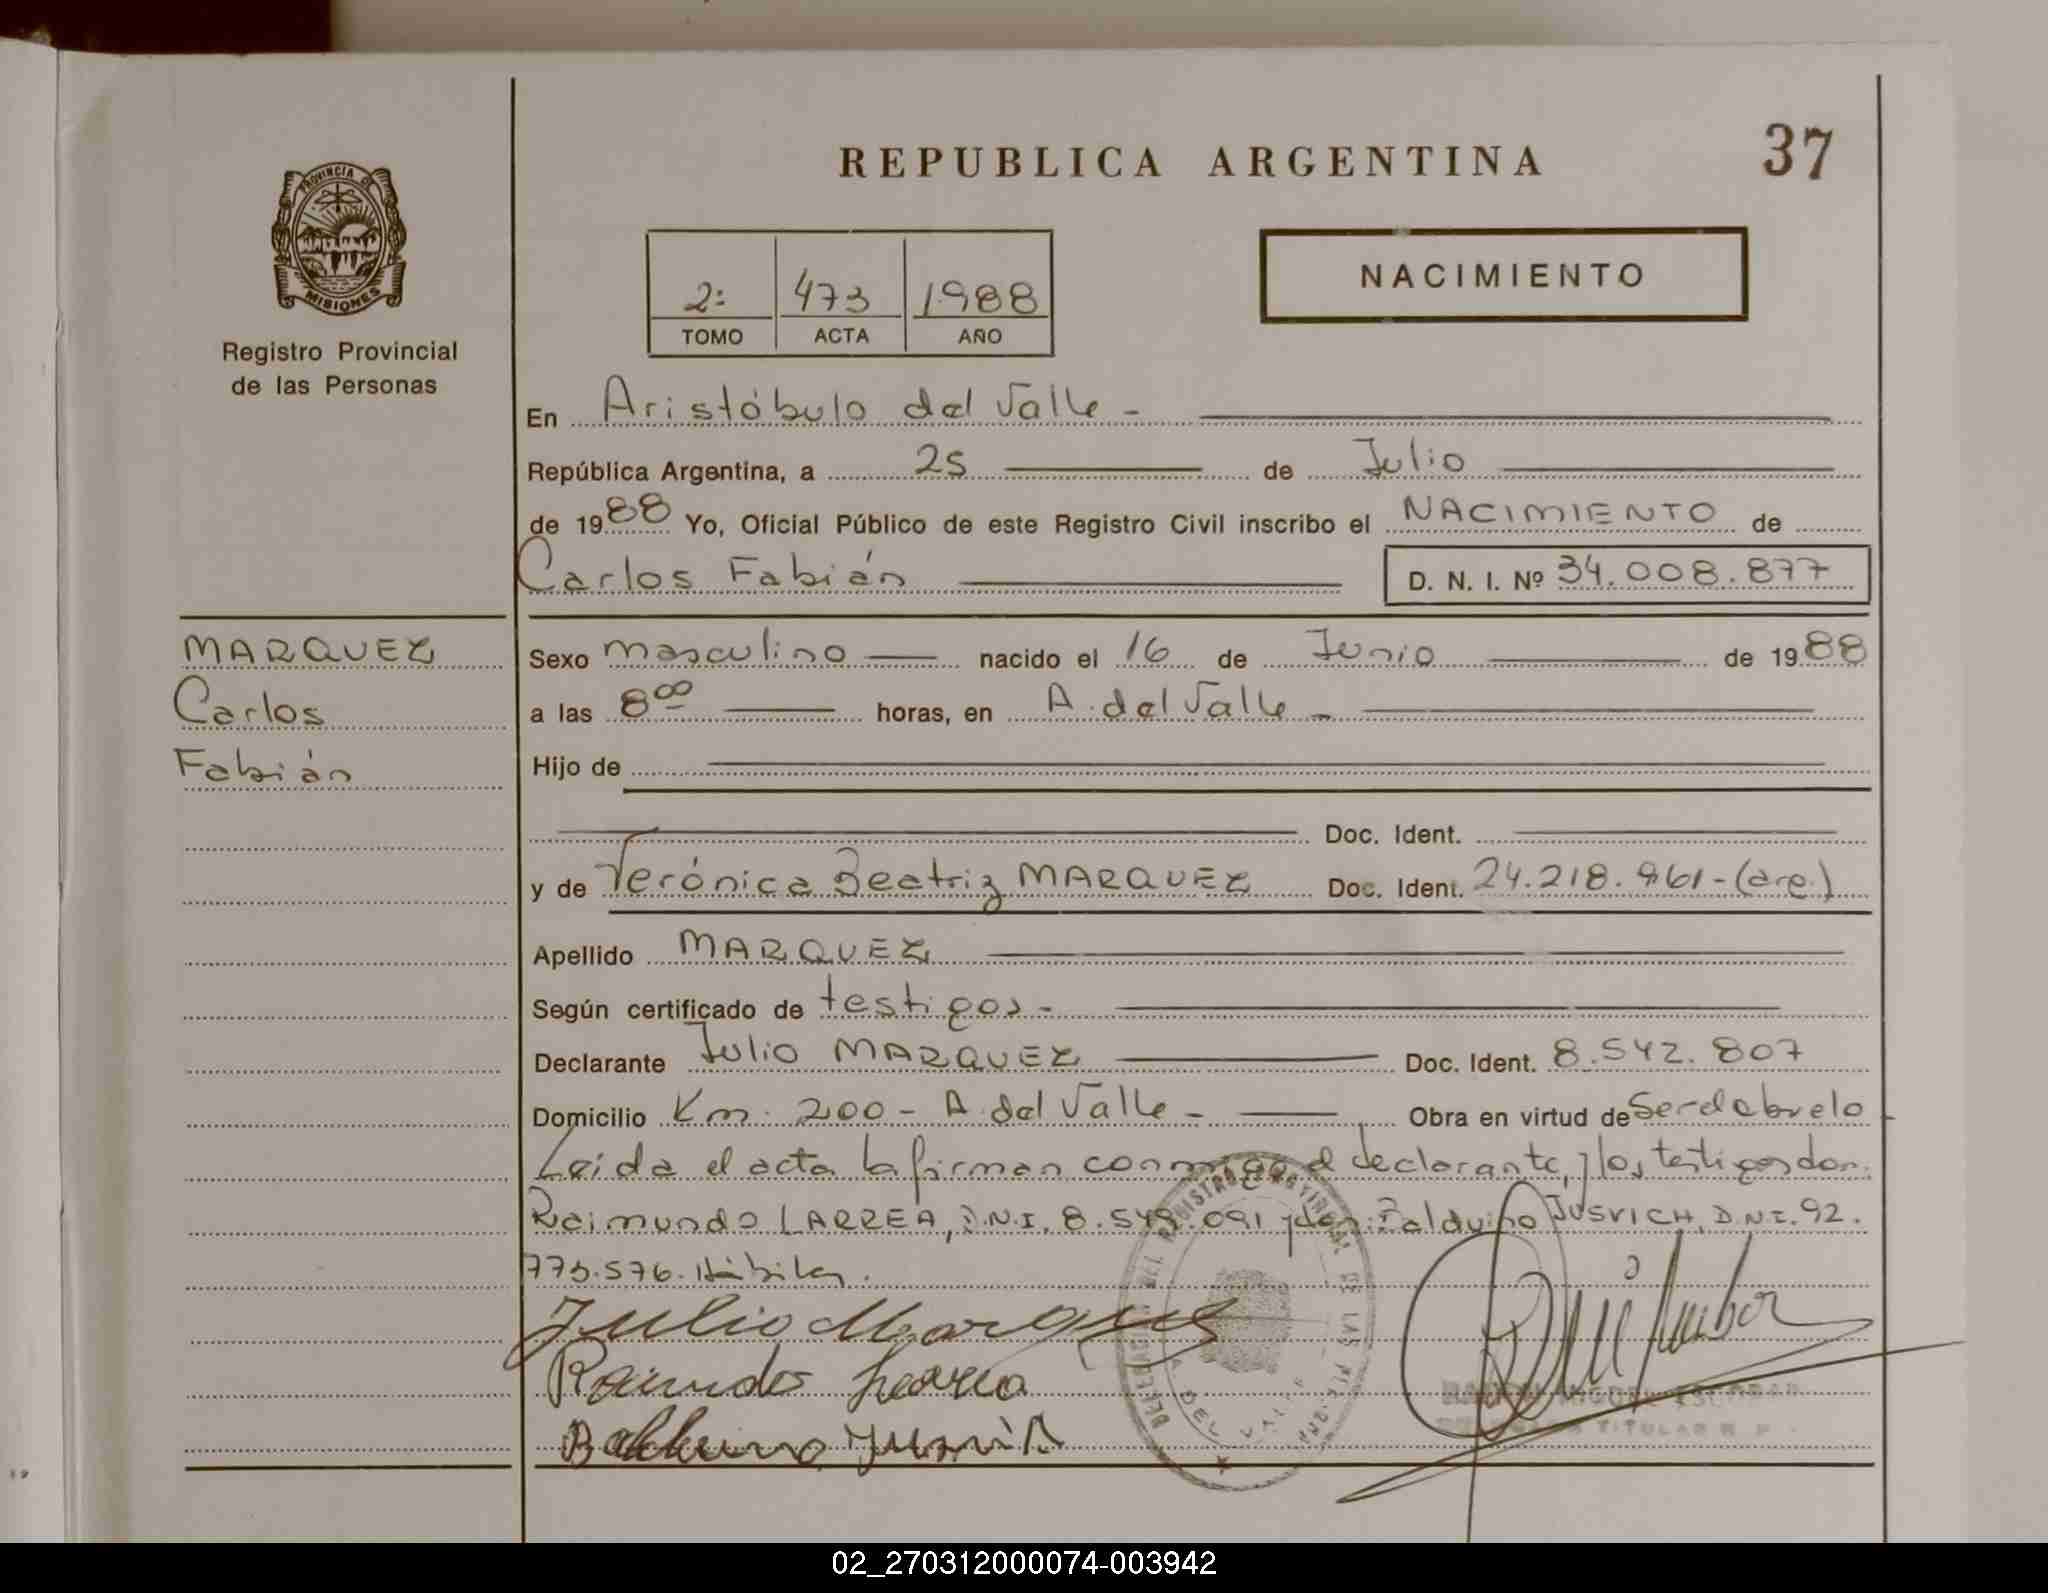 37
REPUBLICA ARGENTINA
PROVINCIA DE
MISIONES
Registro Provincial
de las Personas
NACIMIENTO
2: 473 1988
TOMO ACTA AÑO
En Aristóbulo del Valle -
República Argentina, a 25 de Julio
de 1988 Yo, Oficial Público de este Registro Civil inscribo el NACIMIENTO de
Carlos Fabián D. N. I. Nº 34.008.877
MARQUEZ
Carlos
Fabián
Sexo masculino nacido el 16 de Junio de 1988
a las 8⁰⁰ horas, en A. del Valle -
Hijo de
Doc. Ident.
y de Verónica Beatriz MARQUEZ Doc. Ident. 24.218.961-
Apellido MARQUEZ
Según certificado de testigos -
Declarante Julio MARQUEZ Doc. Ident. 8.542.807
Domicilio Km. 200 - A. del Valle - Obra en virtud de Ser el abuelo
Leída el acta la firman conmigo el declarante, y los testigos don:
Raimundo LARREA, D.N.I. 8.549.091 y don: Balduino JUSVICH, D.N.I. 92.
773.576. Hábiles.
Julio Marquez
Raimundo Larrea
DELEGACION DEL REGISTRO PROVINCIAL DE LAS PERSONAS
A. DEL VALLE
RAMON MIGUEL ESCOBAR
TITULAR R. P.
02_270312000074-003942